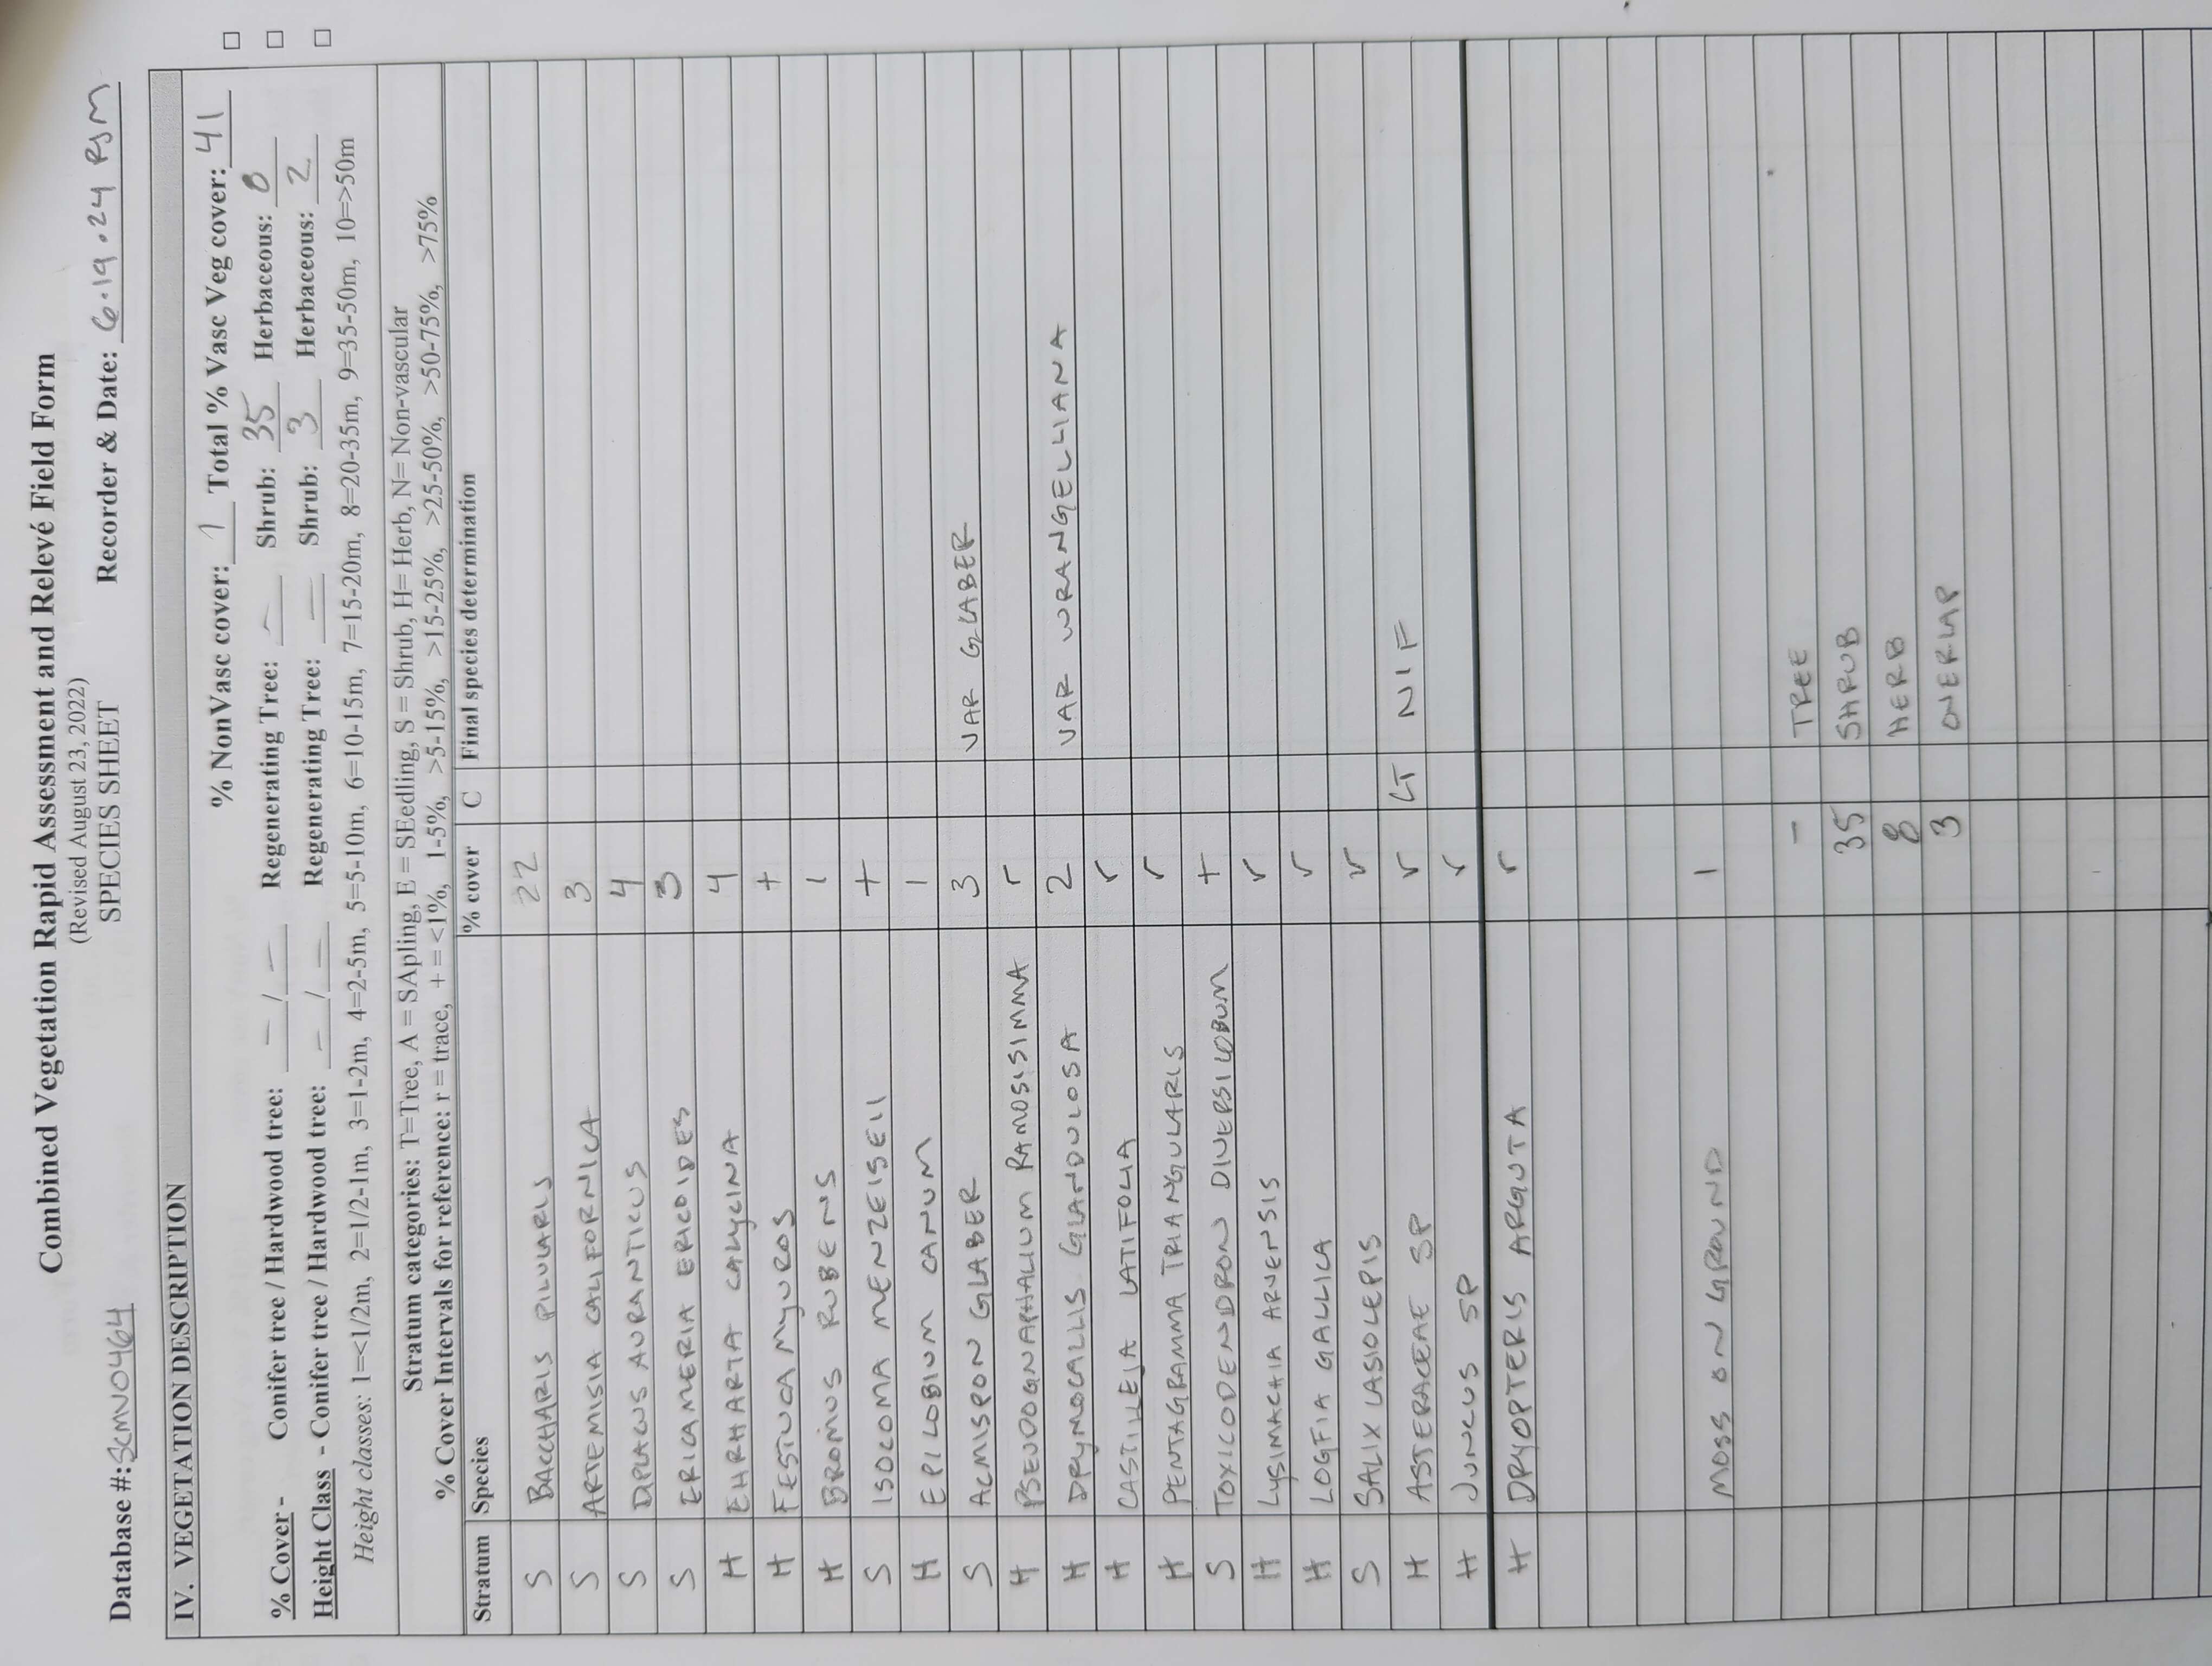 Combined Vegetation Rapid Assessment and Relevé Field Form
(Revised August 23, 2022)
SPECIES SHEET
Database #: SCMV0464 Recorder & Date: 6.19.24 RJM
IV. VEGETATION DESCRIPTION
% NonVasc cover: 1 Total % Vasc Veg cover: 41 □
% Cover - Conifer tree / Hardwood tree: — / — Regenerating Tree: — Shrub: 35 Herbaceous: 8 □
Height Class - Conifer tree / Hardwood tree: — / — Regenerating Tree: — Shrub: 3 Herbaceous: 2 □
Height classes: 1=<1/2m, 2=1/2-1m, 3=1-2m, 4=2-5m, 5=5-10m, 6=10-15m, 7=15-20m, 8=20-35m, 9=35-50m, 10=>50m
Stratum categories: T=Tree, A = SApling, E = SEedling, S = Shrub, H= Herb, N= Non-vascular
% Cover Intervals for reference: r = trace, + = <1%, 1-5%, >5-15%, >15-25%, >25-50%, >50-75%, >75%
Stratum Species % cover C Final species determination
S BACCHARIS PILULARIS 22
S ARTEMISIA CALIFORNICA 3
S DIPLACUS AURANTICUS 4
S ERICAMERIA ERICOIDES 3
H EHRHARTA CALYCINA 4
H FESTUCA MYUROS +
H BROMUS RUBENS 1
S ISOCOMA MENZEISEII +
H EPILOBIUM CANUM 1
S ACMISPON GLABER 3 VAR GLABER
H PSEUDOGNAPHALIUM RAMOSISIMMA r
H DRYMOCALLIS GLANDULOSA 2 VAR WRANGELLIANA
H CASTILLEJA LATIFOLIA r
H PENTAGRAMMA TRIANGULARIS r
S TOXICODENDRON DIVERSILOBUM +
H LYSIMACHIA ARVENSIS r
H LOGFIA GALLICA r
S SALIX LASIOLEPIS r
H ASTERACEAE SP r LT NIF
H JUNCUS SP r
H DRYOPTERIS ARGUTA r
MOSS ON GROUND 1
- TREE
35 SHRUB
8 HERB
3 OVERLAP